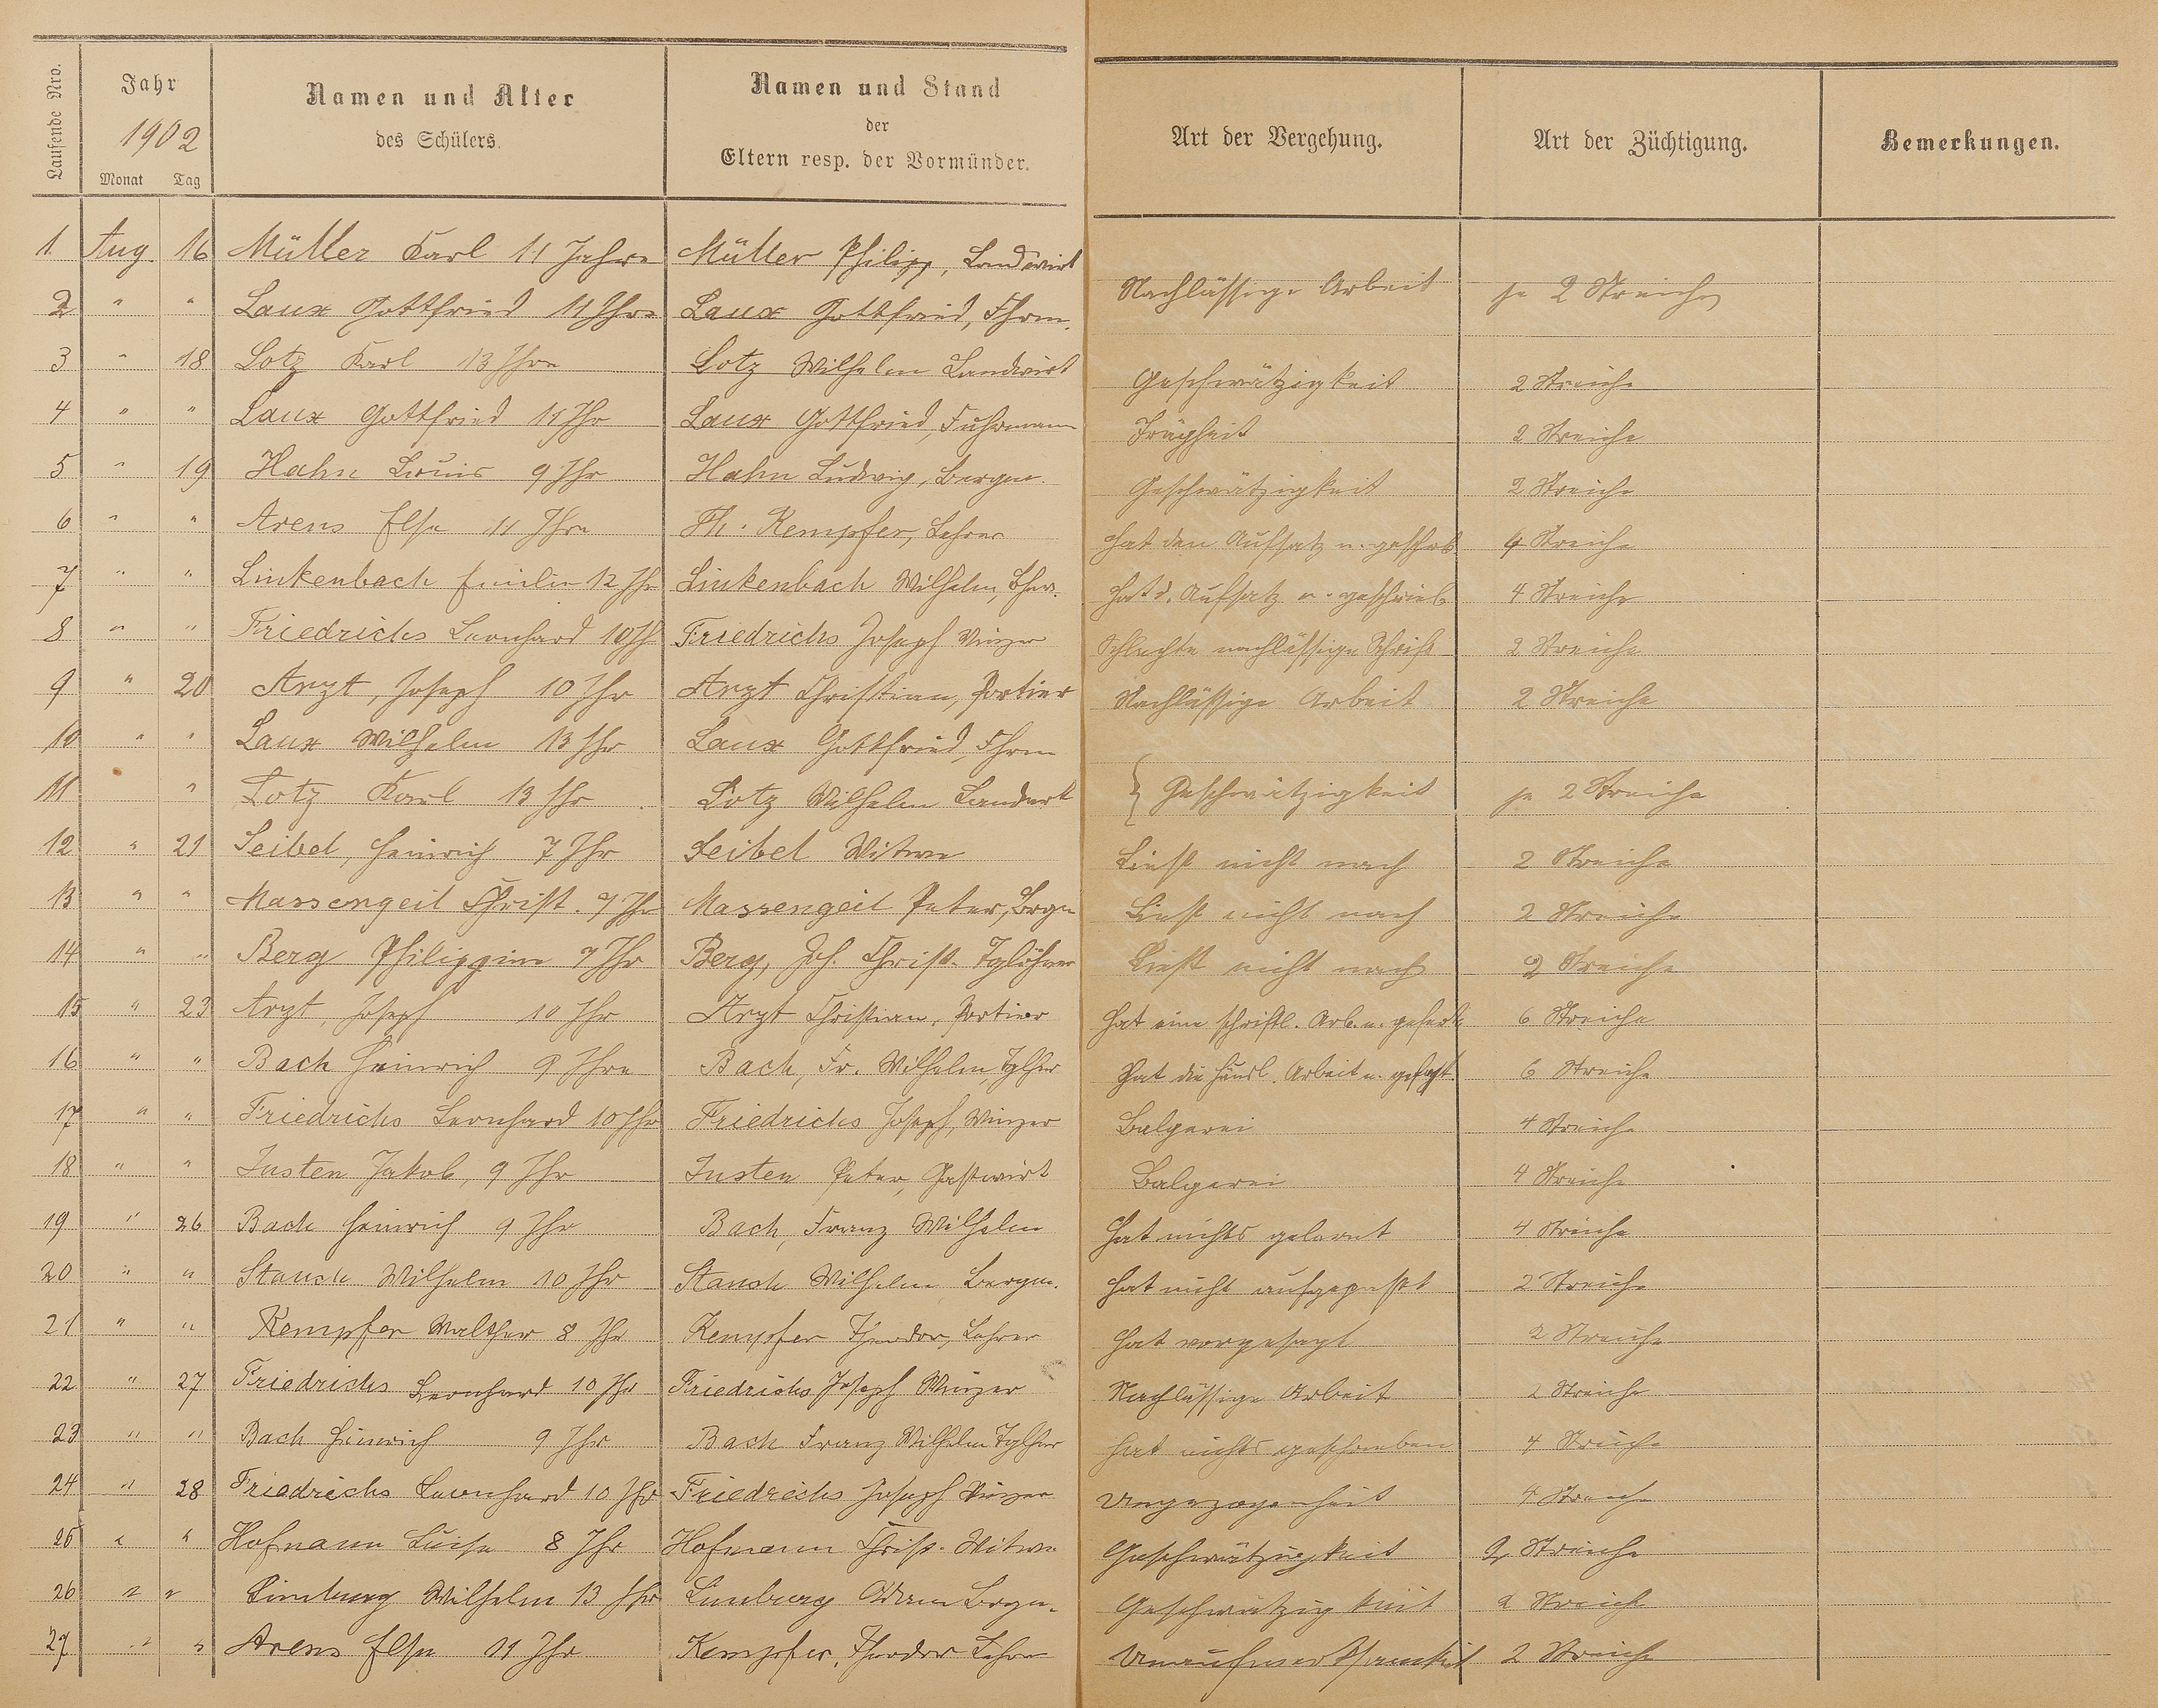 Laufende Nro.
Jahr
1902
Monat Tag
Namen und Alter
des Schülers.
Namen und Stand
der
Eltern resp. der Vormünder.
Art der Vergehung.
Art der Züchtigung.
Bemerkungen.
1. Aug. 16 Müller Karl 11 Jahre Müller Philipp, Landwirt
2 " " Laux Gottfried 11 Jhre Laux Gottfried, Fhrm.
Nachlässige Arbeit je 2 Streiche
3 " 18 Lotz Karl 13 Jhre Lotz Wilhelm Landwirt Geschwätzigkeit 2 Streiche
4 " " Laux Gottfried 11 Jhr Laux Gottfried, Fuhrmann Trägheit 2 Streiche
5 " 19 Hahn Louis 9 Jhr Hahn Ludwig, Bergm. Geschwätzigkeit 2 Streiche
6 " " Arens Else 11 Jhre Th. Kempfer, Lehrer Hat den Aufsatz n. geschrb. 4 Streiche
7 " " Linkenbach Emilie 12 Jhr Linkenbach Wilhelm, Hat d. Aufsatz n. geschrieb. 4 Streiche
8 " " Friedrichs Leonhard 10 Jh Friedrichs Joseph Winzer Schlechte nachlässige Schrift 2 Streiche
9 " 20 Arzt, Joseph 10 Jhr Arzt Christian, Portier Nachlässige Arbeit 2 Streiche
10 " " Laux Wilhelm 13 Jhr Laux Gottfried, Fhrm
11 " Lotz Karl 13 Jhr Lotz Wilhelm Landwrt
} Geschwätzigkeit je 2 Streiche
12 " 21 Seibel, Heinrich 7 Jhr Seibel Witwe Liest nicht nach 2 Streiche
13 " " Massengeil Christ. 7 Jhr Massengeil Peter, Brgm Liest nicht nach 2 Streiche
14 " " Berg Philippine 7 Jhr Berg, Joh. Christ. Tglöhner Liest nicht nach 2 Streiche
15 " 23 Arzt, Joseph 10 Jhr Arzt Christian, Portier Hat eine schriftl. Arb. n. gefert. 6 Streiche
16 " " Bach Heinrich 9 Jhre Bach, Fr. Wilhelm, Tglhr Hat die häusl. Arbeit n. 6 Streiche
17 " " Friedrichs Leonhard 10 Jhr Friedrichs Joseph, Winzer Balgerei 4 Streiche
18 " " Justen Jakob, 9 Jhr Justen Peter, Gastwirt Balgerei 4 Streiche
19 " 26 Bach Heinrich 9 Jhr Bach, Franz Wilhelm Hat nichts gelernt 4 Streiche
20 " " Stauch Wilhelm 10 Jhr Stauch Wilhelm Bergm. Hat nicht aufgepasst 2 Streiche
21 " " Kempfer Walther 8 Jhr Kempfer Theodor, Lehrer Hat vorgesagt 2 Streiche
22 " 27 Friedrichs Leonhard 10 Jhr Friedrichs Joseph Winzer Nachlässige Arbeit 2 Streiche
23 " " Bach Heinrich 9 Jhr Bach Franz Wilhelm Tglhr Hat nichts geschrieben 4 Streiche
24 " 28 Friedrichs Leonhard 10 Jhr Friedrichs Joseph Winzer Ungezogenheit 4 Streiche
25 " " Hofmann Luise 8 Jhr Hofmann Christ. Witwe Geschwätzigkeit 2 Streiche
26 " " Limburg Wilhelm 13 Jhr Limburg Adam Brgm. Geschwätzigkeit 2 Streiche
27 " " Arens Else 11 Jhr Kempfer, Theodor Lehrer Unaufmerksamkeit 2 Streiche